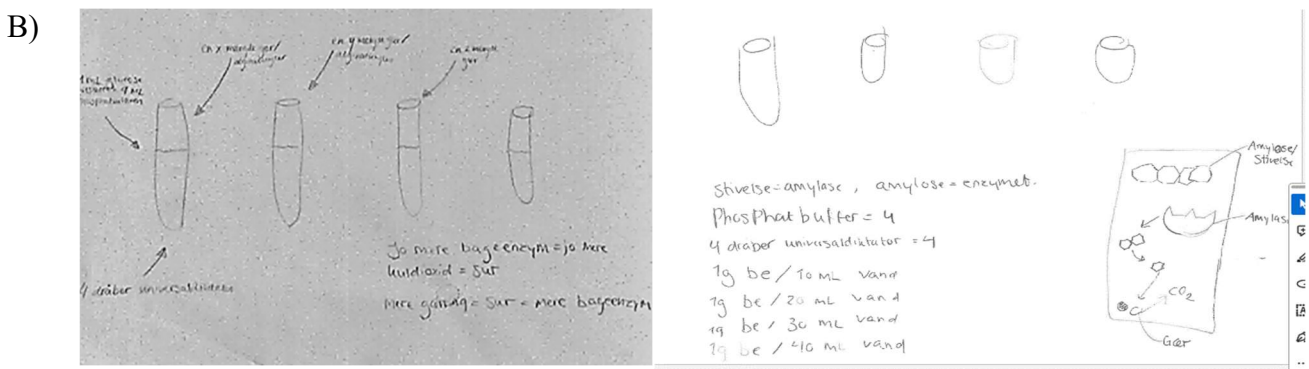 B)
en x mængde gær/
en y mængde gær/
en z mængde
gær
4 dråber universalindikator
Jo mere bageenzym = jo mere
kuldioxid = sur
Mere gæring = sur = mere bageenzym
stivelse = amylase, amylose = enzymet.
Phosphatbuffer = 4
4 dråber universaldiktator = 4
1g be / 10 mL vand
1g be / 20 mL vand
1g be / 30 mL vand
1g be / 40 mL vand
Amylose/
Stivelse
Amylas
CO2
Gær